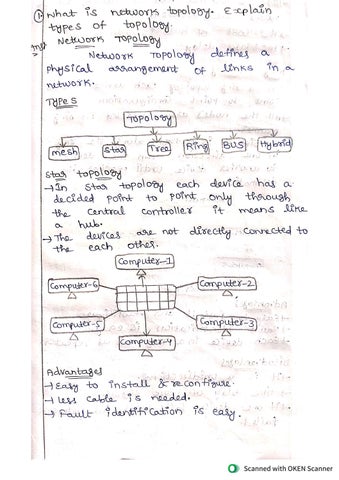 ① What is network topology. Explain
types of topology.
Imp
Network Topology
Network Topology defines a
physical arrangement of links in a
network.
Types
Topology
mesh
Star
Tree
Ring
BUS
Hybrid
Star topology
→In star topology each device has a
decided point to point only through
the central controller it means like
a hub.
→The devices are not directly connected to
the each other.
Computer-1
Computer-6
Computer-2
Computer-5
Computer-3
Computer-4
Advantages
→Easy to install & reconfigure.
→Less cable is needed.
→Fault identification is easy.
Scanned with OKEN Scanner